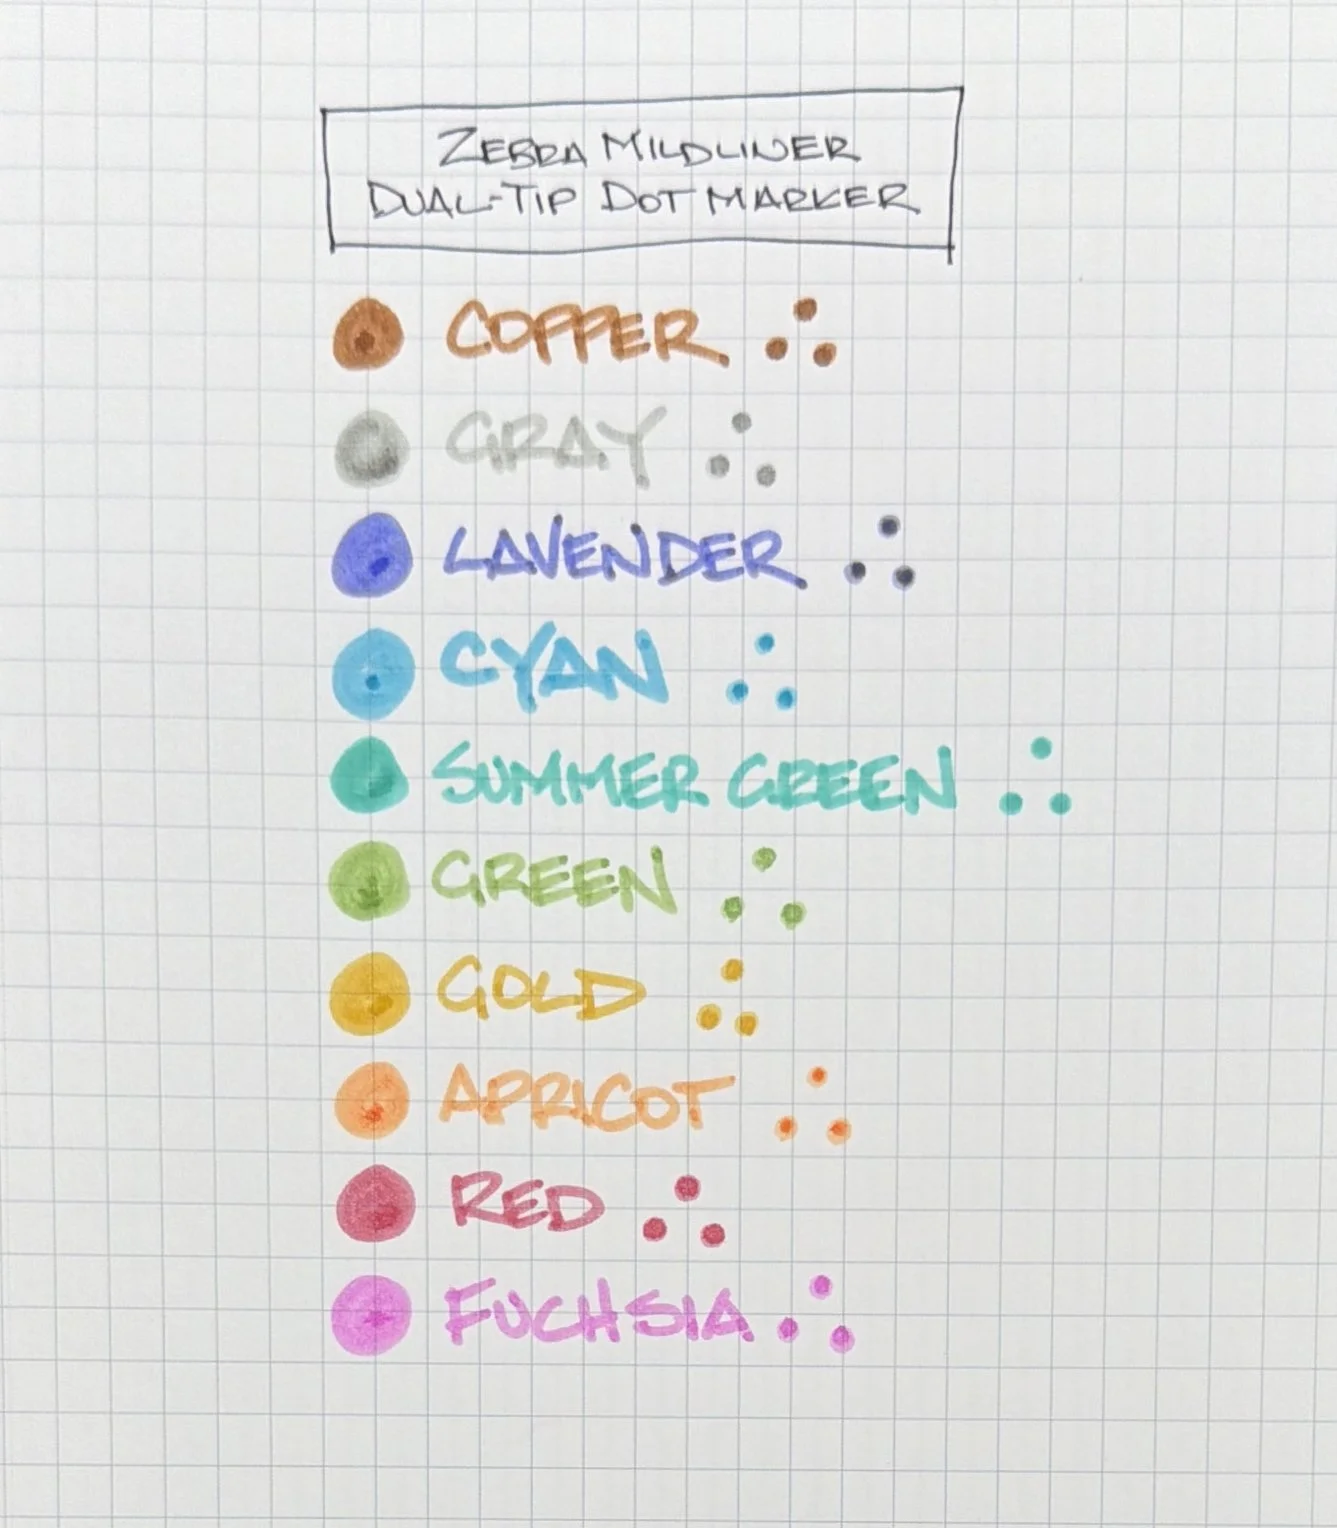 ZEBRA MILDLINER
DUAL-TIP DOT MARKER
COPPER
GRAY
LAVENDER
CYAN
SUMMER GREEN
GREEN
GOLD
APRICOT
RED
FUCHSIA